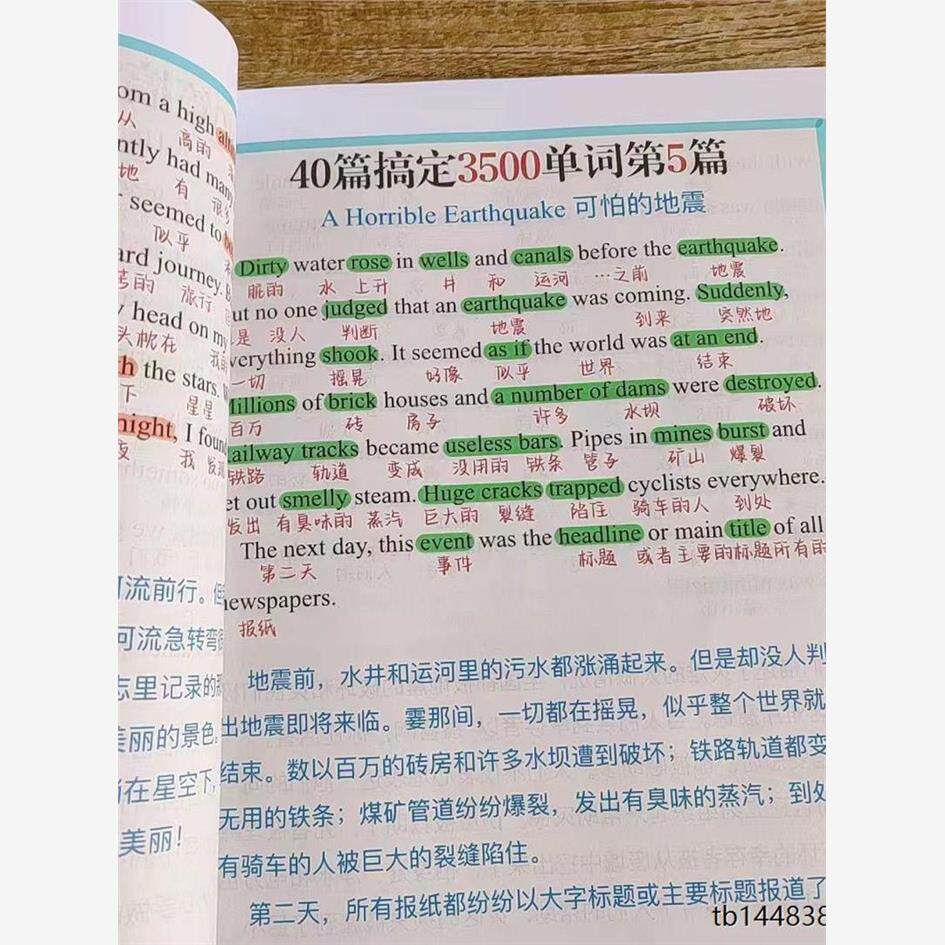 om a high
从 高的
ntly had many
地 有 很多
seemed to
似乎
ard journey.
苦的 旅行
head on my
头枕在
the stars.
下 星星
night, I found
夜 我 发现
可流前行。但
可流急转弯
志里记录的
美丽的景色
尚在星空下,
美丽!
40篇搞定3500单词第5篇
A Horrible Earthquake 可怕的地震
Dirty water rose in wells and canals before the earthquake.
脏的 水 上升 井 和 运河 …之前 地震
ut no one judged that an earthquake was coming. Suddenly,
是 没人 判断 地震 到来 突然地
verything shook. It seemed as if the world was at an end.
一切 摇晃 好像 似乎 世界 结束
Millions of brick houses and a number of dams were destroyed.
百万 砖 房子 许多 水坝 破坏
ailway tracks became useless bars. Pipes in mines burst and
铁路 轨道 变成 没用的 铁条 管子 矿山 爆裂
et out smelly steam. Huge cracks trapped cyclists everywhere.
发出 有臭味的 蒸汽 巨大的 裂缝 陷住 骑车的人 到处
The next day, this event was the headline or main title of all
第二天 事件 标题 或者主要的标题所有的
newspapers.
报纸
地震前，水井和运河里的污水都涨涌起来。但是却没人判
出地震即将来临。霎那间，一切都在摇晃，似乎整个世界就
结束。数以百万的砖房和许多水坝遭到破坏；铁路轨道都变
无用的铁条；煤矿管道纷纷爆裂，发出有臭味的蒸汽；到处
有骑车的人被巨大的裂缝陷住。
第二天，所有报纸都纷纷以大字标题或主要标题报道了
tb144838